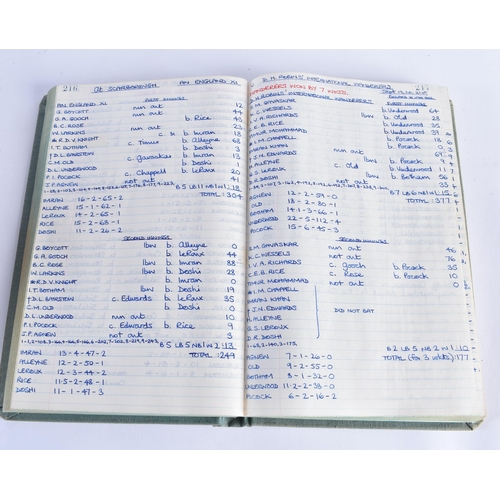 216 At SCARBOROUGH. AN ENGLAND XI.
AN ENGLAND XI FIRST INNINGS
G. BOYCOTT run out 12
G.A. GOOCH b. Rice 45
B.C. ROSE run out 23
W. LARKINS c. H b. Imran
R.D.V. KNIGHT b. Alleyne 68
I.T. BOTHAM b. Deshi 3
†D.L. BAIRSTOW c. Gavaskar b. Imran 13
C.M. OLD b. Deshi
D.L. UNDERWOOD b. Imran 20
P.I. POCOCK c. Chappell b. Le Roux 41
J.P. AGNEW not out
TOTAL: 304
IMRAN 16-2-65-2
ALLEYNE 15-1-62-1
LEROUX 14-2-65-1
RICE 15-2-68-1
DESHI 11-2-26-2
SECOND INNINGS
G. BOYCOTT lbw b. Alleyne 0
G.A. GOOCH b. Le Roux 44
B.C. ROSE lbw b. Imran 38
W. LARKINS lbw b. Deshi 28
R.D.V. KNIGHT b. Imran 0
I.T. BOTHAM lbw b. Deshi 19
†D.L. BAIRSTOW c. Edwards b. Le Roux 35
C.M. OLD b. Deshi 0
D.L. UNDERWOOD run out 10
P.I. POCOCK c. Edwards b. Rice 9
J.P. AGNEW not out 3
TOTAL: 249
IMRAN 13-4-47-2
ALLEYNE 12-2-50-1
LEROUX 12-3-44-2
RICE 11.5-2-48-1
DESHI 11-1-47-3
D.H. ROBINS' INTERNATIONAL WANDERERS 217
WANDERERS WON BY 7 WKTS.
ROBINS' INTERNATIONAL WANDERERS FIRST INNINGS
S.M. GAVASKAR b. Underwood 64
C. WESSELS b. Old 28
V.A. RICHARDS lbw b. Underwood 35
E.B. RICE b. Underwood 39
TAIMUR MOHAMMAD
I.M. CHAPPELL b. Pocock
IMRAN KHAN not out
J.N. EDWARDS run out
ALLEYNE lbw b. Pocock 11
G.S. LEROUX c. Old b. Underwood 7
D.R. DESHI b. Botham 56
TOTAL: 377
AGNEW 12-2-59-0
OLD 18-2-80-1
BOTHAM 14.1-3-66-1
UNDERWOOD 22-5-112-4
POCOCK 15-6-45-3
SECOND INNINGS
S.M. GAVASKAR run out 46
K.C. WESSELS not out 76
I.V.A. RICHARDS c. Gooch b. Pocock 35
C.E.B. RICE c. Rose b. Pocock 10
TAIMUR MOHAMMAD not out 0
I.M. CHAPPELL
IMRAN KHAN
†J.N. EDWARDS DID NOT BAT
H. ALLEYNE
G.S. LEROUX
D.R. DESHI
TOTAL (for 3 wkts): 177
AGNEW 7-1-26-0
OLD 9-2-55-0
BOTHAM 8-1-32-0
UNDERWOOD 11-2-38-0
POCOCK 6-2-16-2